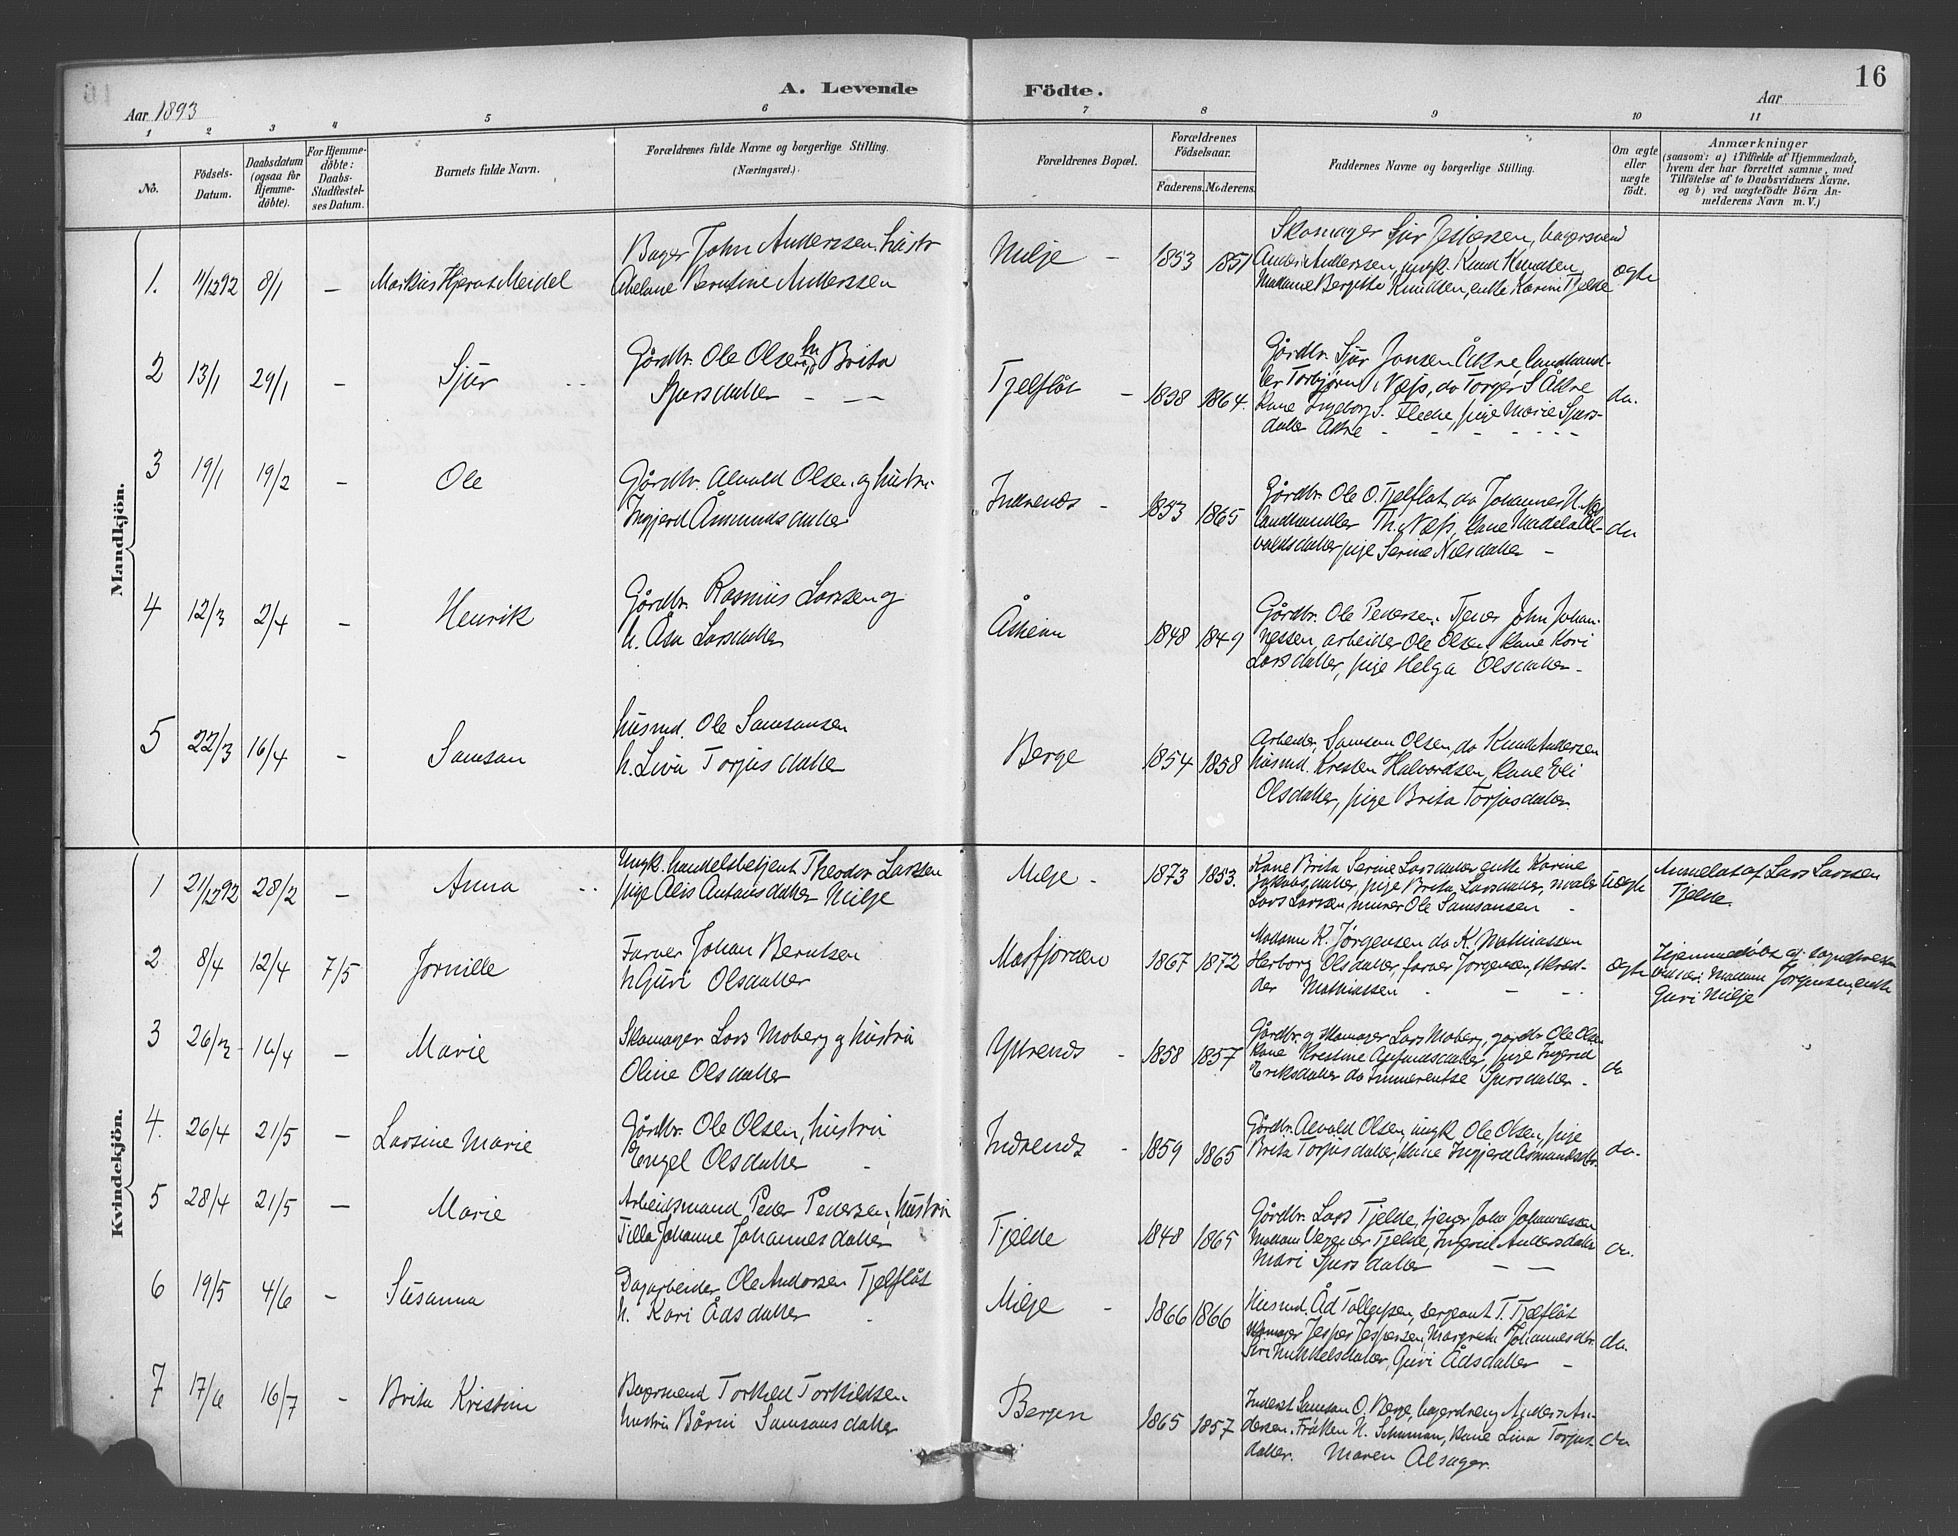 16
A. Levende Födte.
Aar 1893
Aar
1 2 3 4 5 6 7 8 9 10 11
No.
Födsels-
Datum.
Daabsdatum
(ogsaa for
Hjemme-
döbte).
For Hjemme-
döbte:
Daabs-
Stadfæstel-
ses Datum.
Barnets fulde Navn.
Forældrenes fulde Navne og borgerlige Stilling.
(Næringsvei.)
Forældrenes Bopæl.
Forældrenes
Födselsaar.
Faderens. Moderens.
Faddernes Navne og borgerlige Stilling.
Om ægte
eller
uægte
födt.
Anmærkninger
(saasom: a) i Tilfælde af Hjemmedaab,
hvem der har forrettet samme, med
Tilföielse af to Daabsvidners Navne,
og b) ved uægtefödte Börn An-
melderens Navn m. V.)
Mandkjön.
1. 11/12 92 8/1 –
Bager John Anderssen, hustr
Abelane Berntine Anderssen
Milje – 1853 1851
Skomager Sjur Jespersen, bagersvend
Anders Anderssen, ungk. Knud Knudsen,
Madame Bergitte Knudsen, enke Karine Tjelde
ægte
2 13/1 29/1 – Sjur
Gårdbr. Ole Olsen, hu Brita
Sjursdatter – –
Tjelflåt – 1838 1864.
Gårdbr. Sjur Jonsen Åkre, landhand-
ler Torbjörn Næss, do Torger S Åkre
Kone Ingeborg S. Fleche, pige Marie Sjurs-
datter Åkre – – – – –
do.
3 19/1 19/2 – Ole
Gårdbr. Alvald Olsen og hustru
Ingjerd Åsmundsdatter
Indrenes – 1853 1865
Gårdbr. Ole O. Tjelflat, do Johannes H.
landhandler Th. Næss, kone
valdsdatter, pige Serine Nilsdatter –
do
4 12/3 2/4 – Henrik
Gårdbr. Rasmus Larsen og
h. Åsa Larsdatter
Åsheim 1848 1849
Gårdbr. Ole Pedersen, Tjener John Johan-
nessen, arbeider Ole Olsen, kone Kari
Larsdatter, pige Helga Olsdatter –
5 22/3 16/4 – Samson
husmd. Ole Samsonsen
h. Liva Torjusdatter
Berge 1854 1858
Arbeider Samson Olsen, do Knud Andersen
husmd. Kresten Halvordsen, kone Eli
Olsdatter, pige Brita Torjusdatter.
Kvindekjön.
1 21/12 92 28/2 – Anna
Ungk. handelsbetjent Theodor Larssen
pige Alis Antonsdatter Milje
Milje – 1873 1853.
Kone Brita Serine Larsdatter, enke Karine
Jakobsdatter, pige Brita Larsdatter, maler
Lars Larsen, murer Ole Samsonsen –
uægte
Anmeldt af Lars Larssen
Tjelde.
2 8/4 12/4 7/5 Jornille
Farver Johan Berntsen
h Guri Olsdatter
Masfjorden 1867 1872
Madame K. Jørgensen do K. Mathiassen
Herborg Olsdatter, farver Jørgensen, skræd-
der Mathiassen – – –
ægte
Hjemmedøbt af sognepresten
vidner: Madam Jørgensen, enke
Guri Milje
3 26/3 16/4 – Marie
Skomager Lars Moberg og hustru
Oline Olsdatter
Ytrenes – 1858 1857
Gårdbr. og skomager Lars Moberg, gårdbr Ole Olsen
kone Krestine Anfinnsdatter, pige Ingerid
Eriksdatter do Immerentse Sjursdatter –
do
4. 26/4 21/5 – Larsine Marie
Gårdbr. Ole Olsen, hustru
Engel Olsdatter –
Indrenes – 1859 1865
Gårdbr. Alvald Olsen, ungk Ole Olsen, pige
Brita Torjusdatter, kone Ingjerd Åsmundsdtr.
do.
5 28/4 21/5 – Marie
Arbeidsmand Peder Pedersen, hustru
Tilla Johanne Johannesdatter
Tjelde 1848 1865
Gårdbr. Lars Tjelde, tjener John Johannessen
Madam Vegner Tjelde, Ingerid Andersdatter
Mari Sjursdatter – –
do.
6 19/5 4/6 – Susanna
Dagarbeider Ole Andersen Tjelflåt
h. Kari Ådsdatter –
Milje – 1866 1866
Husmd. Åd Tollefsen, sergeant T. Tjelflåt
skomager Jesper Jespersen, Margreta Johannesdtr.
Siri Mikkelsdatter, Guri Ådsdatter –
do.
7 17/6 16/7 – Brita Kristine
Torkild Torkildsen
hustru Bårni Samsonsdatter
Bergen 1865 1857
Inderst Samson O. Berge, bagerdreng Anders An-
dersen. Frøken H. Schuman, kone Liva Torjus-
datter. Maren Alsager.
do